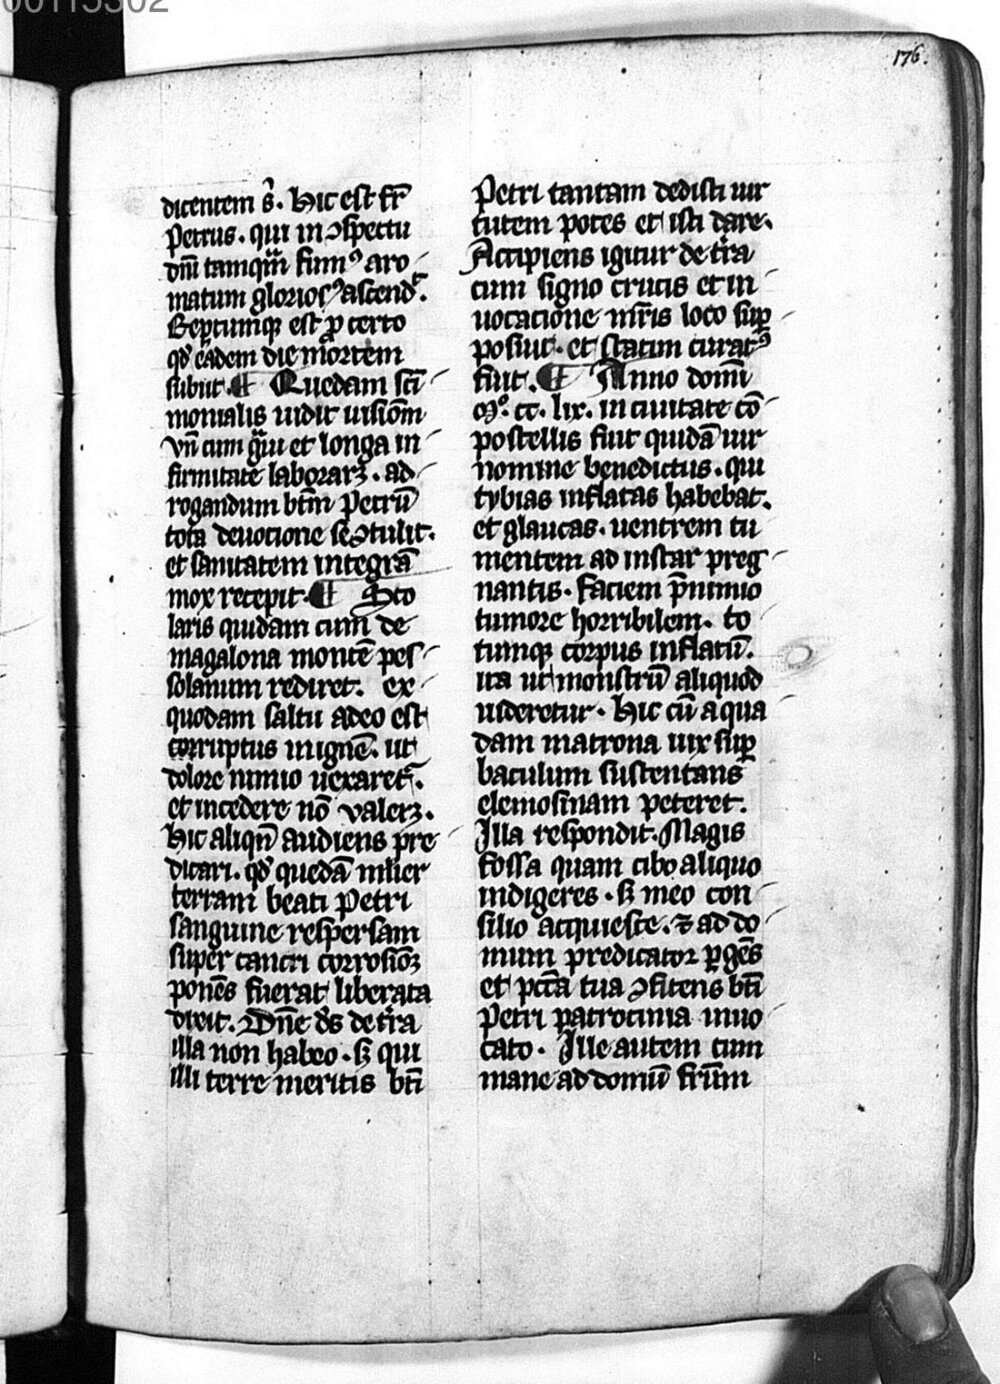 00115302
176.
dicentem s̾. Hic est fr̄
Petrus. qui in ↄspectu
dn̄i tamqͣm fumꝰ aro
matum gloriosꝰ ascend᷑.
Reꝑtumqꝫ est ꝓ certo
qd̾ eadem die mortem
subiit. ¶ Quedam scī
monialis uidit uisiōm
vn̄ cum gͣui et longa in
firmitate laborarꝫ. ad
rogandum btm̄ Petrū
tota deuocione se ↄtulit.
et sanitatem integrā
mox recepit. ¶ Sco
laris quidam cum de
magalona montē pes
solanum rediret. ex
quodam saltu adeo est
corruptus inignē. ut
dolore nimio uexaret᷑.
et incedere nō valerꝫ.
Hic aliqn̄ audiens pre
dicari. qd̾ quedā mlier
terram beati Petri
sanguine respersam
super cancri corrosiōꝫ
ponēs fuerat liberata
dixit. Dn̄e ds̄ de tͥra
illa non habeo. sꝫ qui
illi terre meritis bt̄i
Petri tantam dedisti uir
tutem potes et isti dare.
Accipiens igitur de tͥra
cum signo crucis et in
uocacione mr̄is loco suꝑ
posiuit. et statim curatꝰ
fuit. ¶ Anno domī
Mͦ. cc. lix. in ciuitate cō
postellis fuit quidā uir
nomine benedictus. qui
tybias inflatas habebat.
et glaucas. uentrem tu
mentem ad instar preg
nantis. faciem p̄nimio
tumore horribilem. to
tumqꝫ corpus inflatū.
ita ut monstrū aliquod
uideretur. Hic cū a qua
dam matrona uix suꝑ
baculum sustentans
elemosinam peteret.
Illa respondit. Magis
fossa quam cibo aliquo
indigeres. sꝫ meo con
silio acquiesce. ⁊ ad do
mum predicator ꝑgēs
et pcc̄a tua ↄfitens bt̄i
Petri patrocinia inuo
cato. Ille autem cum
mane ad domū fr̄um